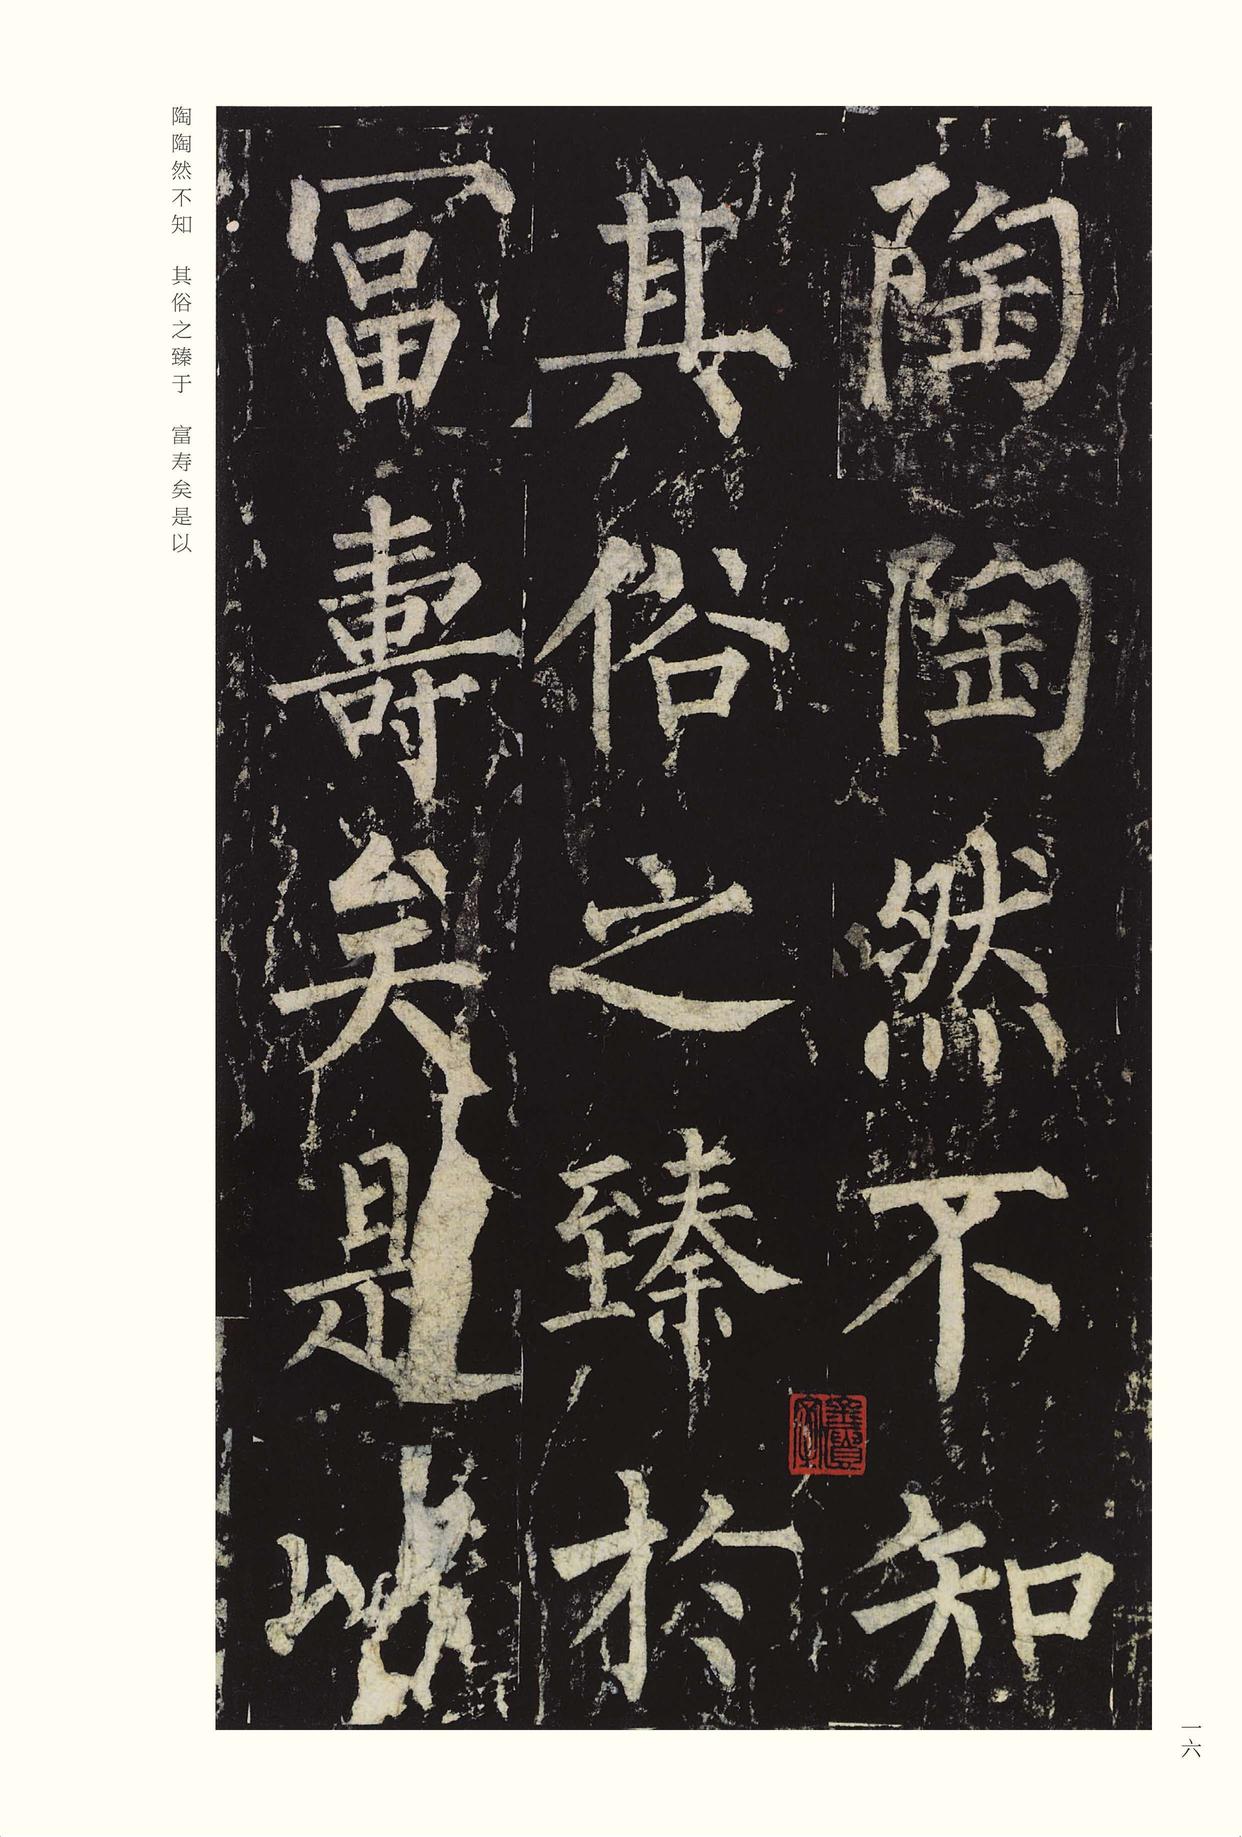 陶陶然不知
其俗之臻於
冨壽矣是以
陶陶然不知　其俗之臻于　富寿矣是以
一六